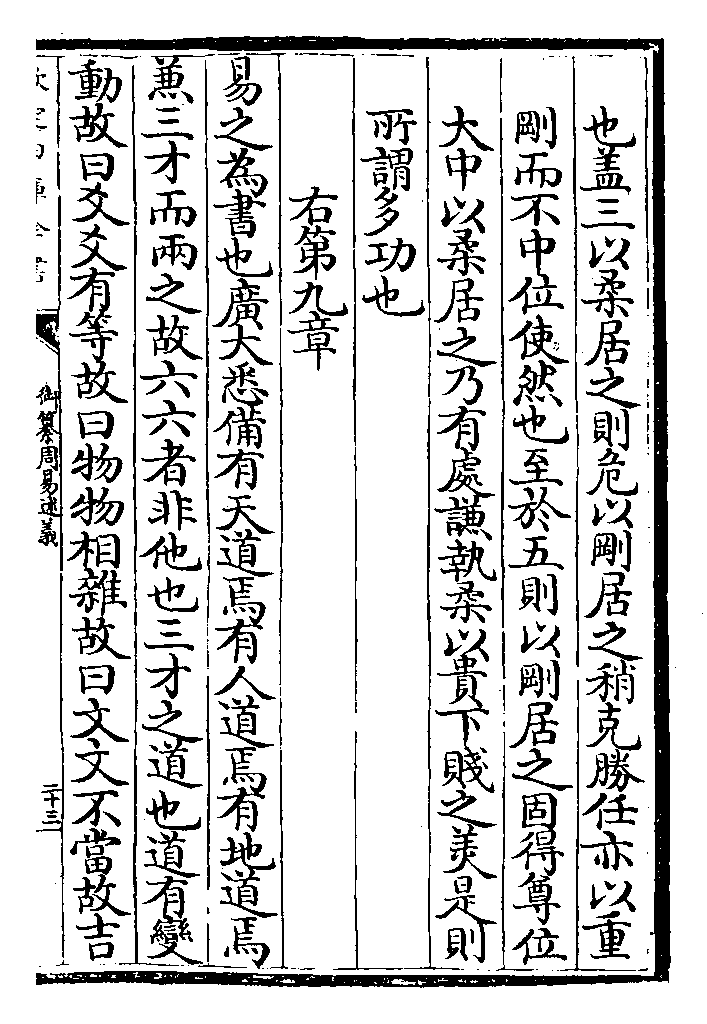 也盖三以柔居之則危以剛居之稍克勝任亦以重
剛而不中位使然也至於五則以剛居之固得尊位
大中以柔居之乃有處謙執柔以貴下賤之美是則
所謂多功也
右第九章
易之為書也廣大悉備有天道焉有人道焉有地道焉
兼三才而兩之故六六者非他也三才之道也道有變
動故曰爻爻有等故曰物物相雜故曰文文不當故吉
欽定四庫全書
御纂周易述義
二十三